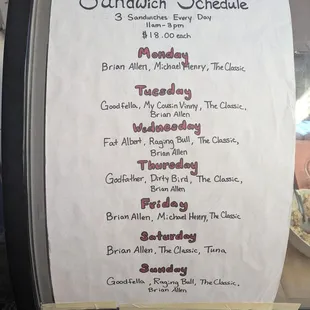 Sandwich Schedule
3 Sandwiches Every Day
11am-3pm
$18.00 each
Monday
Brian Allen, Michael Henry, The Classic
Tuesday
Goodfella, My Cousin Vinny, The Classic,
Brian Allen
Wednesday
Fat Albert, Raging Bull, The Classic,
Brian Allen
Thursday
Godfather, Dirty Bird, The Classic,
Brian Allen
Friday
Brian Allen, Michael Henry, The Classic
Saturday
Brian Allen, The Classic, Tuna
Sunday
Goodfella, Raging Bull, The Classic,
Brian Allen